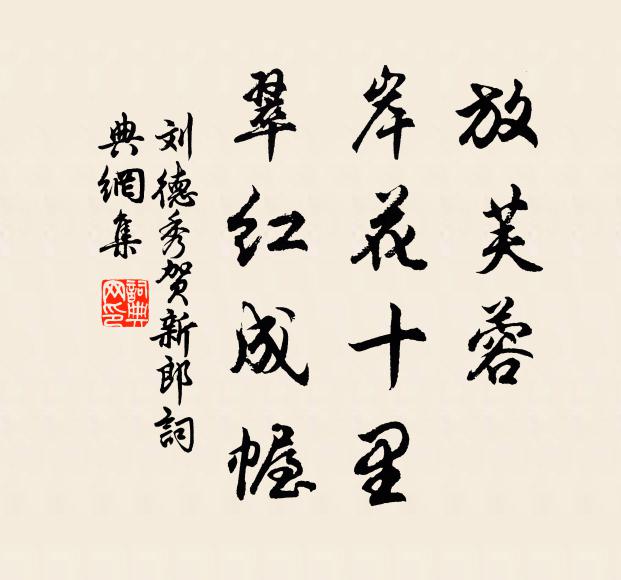 放芙蓉
岸花十里
翠红成幄
刘德秀贺新郎词
典網集
詞典
网印